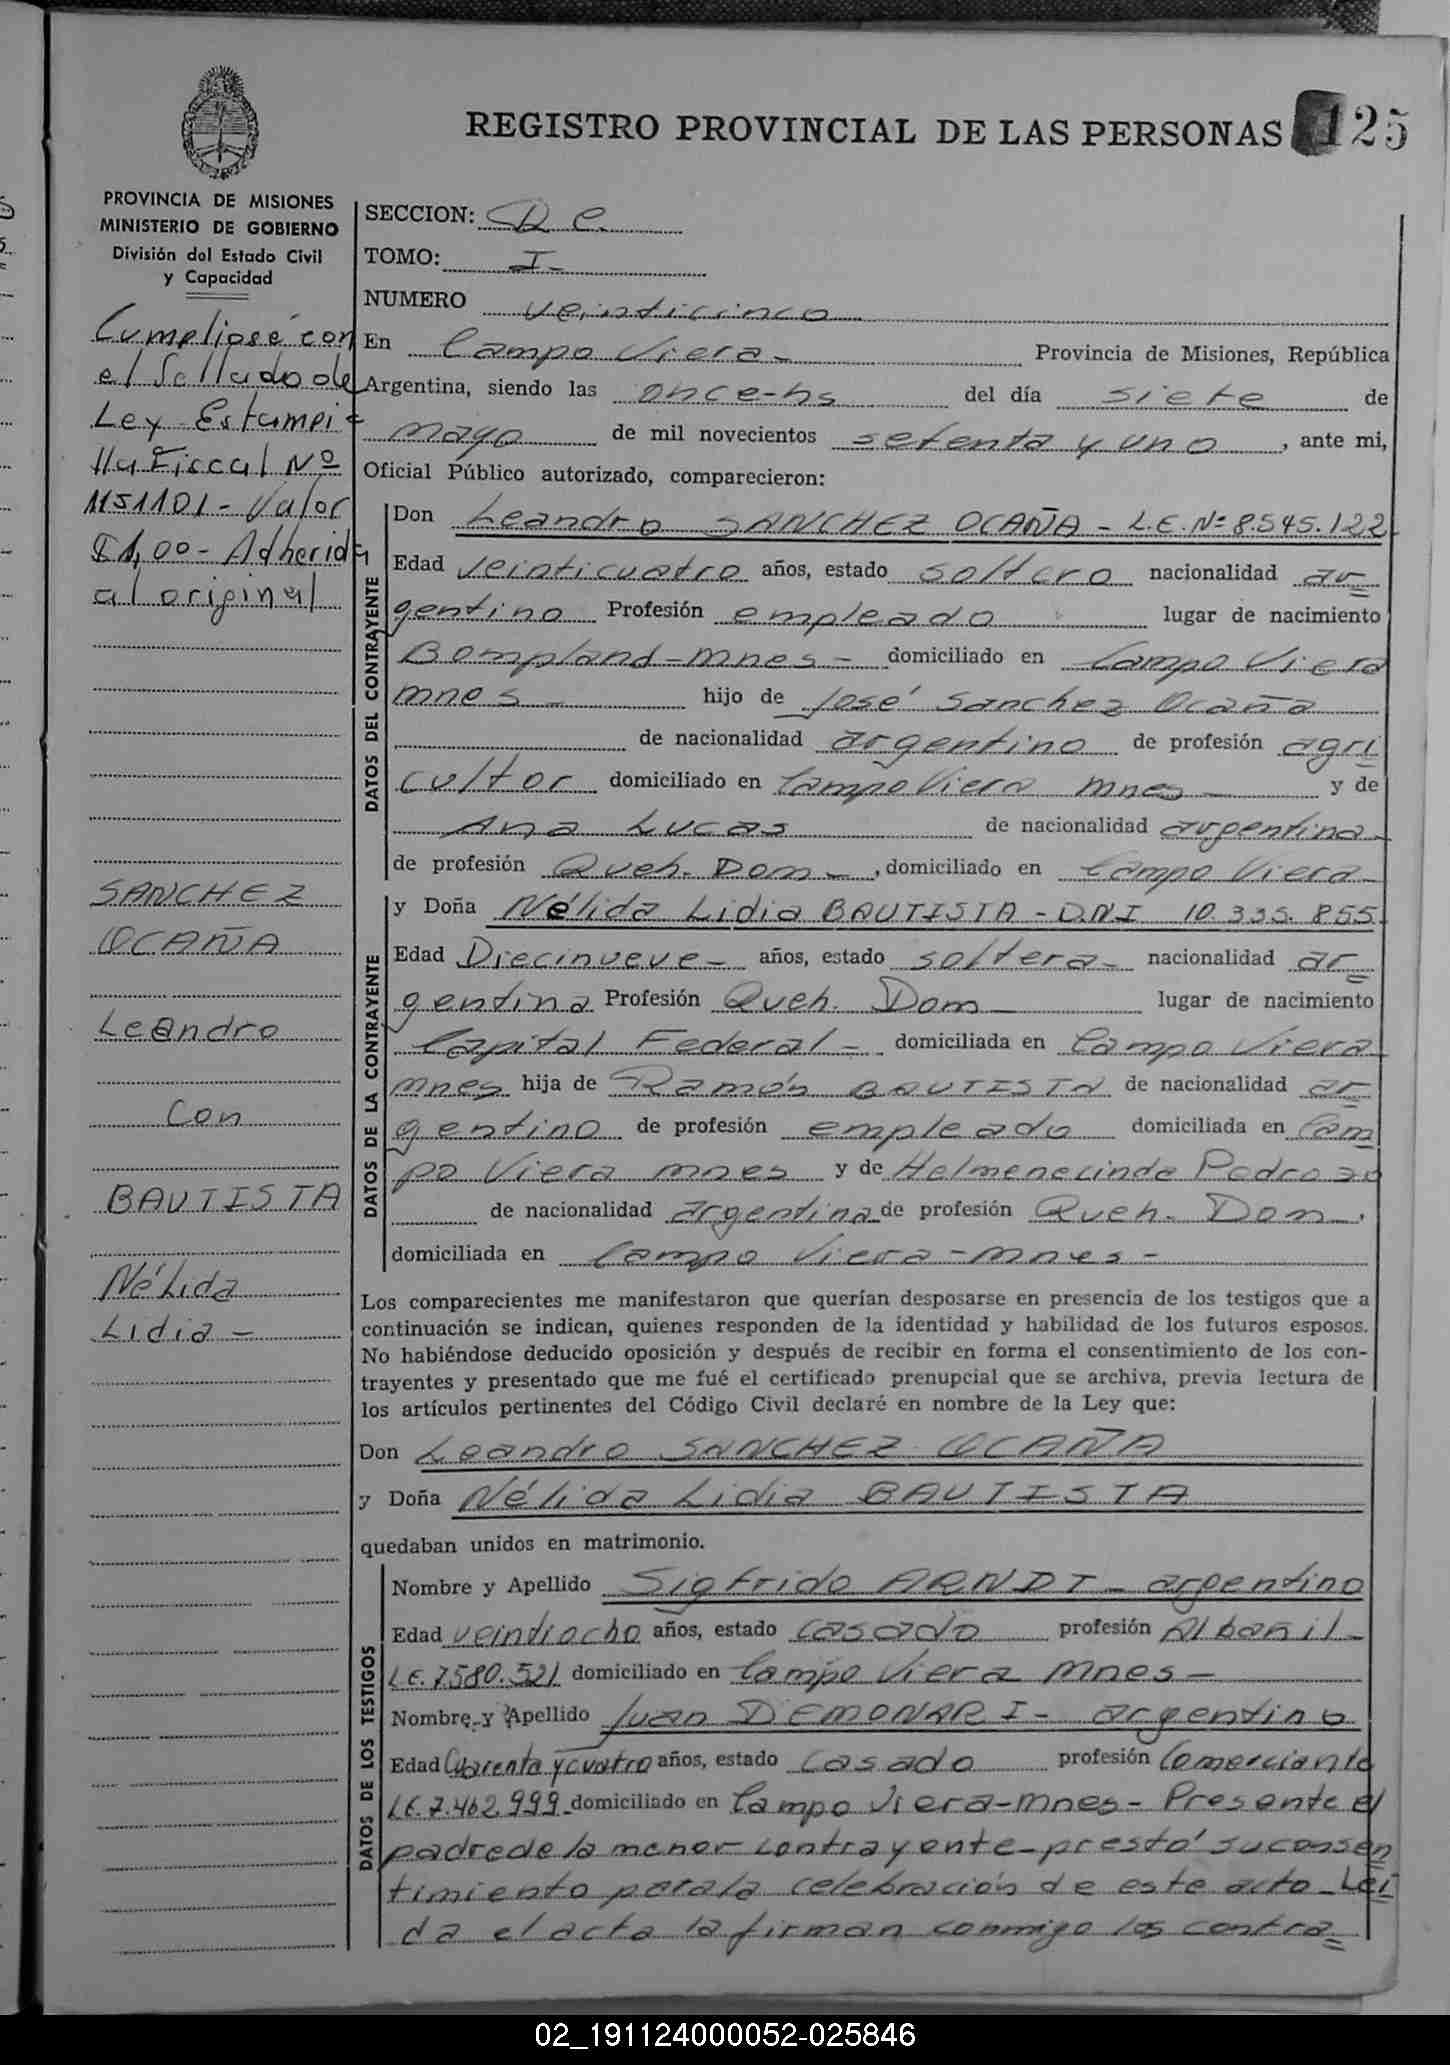 REGISTRO PROVINCIAL DE LAS PERSONAS 125
PROVINCIA DE MISIONES
MINISTERIO DE GOBIERNO
División del Estado Civil
y Capacidad
Cumpliose con
el Sellado de
Ley Estampi
lla Fiscal Nº
1151101 - Valor
$1,00 - Adherida
al original
SANCHEZ
OCAÑA
Leandro
Con
BAUTISTA
Nélida
Lidia -
SECCION:
TOMO: I -
NUMERO veinticinco
En Campo Viera - Provincia de Misiones, República
Argentina, siendo las once-hs del día siete de
mayo de mil novecientos setenta y uno, ante mi,
Oficial Público autorizado, comparecieron:
DATOS DEL CONTRAYENTE
Don Leandro SANCHEZ OCAÑA - L.E. Nº 8.545.122
Edad veinticuatro años, estado soltero nacionalidad ar=
gentino Profesión empleado lugar de nacimiento
Bompland - mnes - domiciliado en Campo Viera
mnes - hijo de José Sanchez Ocaña
de nacionalidad argentino de profesión agri=
cultor domiciliado en Campo Viera mnes - y de
Ana Lucas de nacionalidad argentina -
de profesión Queh. Dom -, domiciliado en Campo Viera -
DATOS DE LA CONTRAYENTE
y Doña Nélida Lidia BAUTISTA - D.N.I 10.335.855
Edad Diecinueve - años, estado soltera - nacionalidad ar=
gentina Profesión Queh. Dom - lugar de nacimiento
Capital Federal - domiciliada en Campo Viera -
mnes hija de Ramón BAUTISTA de nacionalidad ar=
gentino de profesión empleado domiciliada en Cam=
po Viera mnes y de Helmenecinda Pedrozo
de nacionalidad argentina de profesión Queh. Dom -,
domiciliada en Campo Viera - mnes -
Los comparecientes me manifestaron que querían desposarse en presencia de los testigos que a
continuación se indican, quienes responden de la identidad y habilidad de los futuros esposos.
No habiéndose deducido oposición y después de recibir en forma el consentimiento de los con-
trayentes y presentado que me fué el certificado prenupcial que se archiva, previa lectura de
los artículos pertinentes del Código Civil declaré en nombre de la Ley que:
Don Leandro SANCHEZ OCAÑA
y Doña Nélida Lidia BAUTISTA
quedaban unidos en matrimonio.
DATOS DE LOS TESTIGOS
Nombre y Apellido Sigfrido ARNDT - argentino
Edad veintiocho años, estado casado profesión Albañil -
L.E. 7.580.521 domiciliado en Campo Viera mnes -
Nombre y Apellido Juan DEMONARI - argentino
Edad Cuarenta y cuatro años, estado casado profesión Comerciante
L.E. 7.462.999 - domiciliado en Campo Viera - mnes - Presente el
padre de la menor contrayente - prestó su consen
timiento para la celebración de este acto - Leí=
da el acta la firman conmigo los contra=
02_191124000052-025846